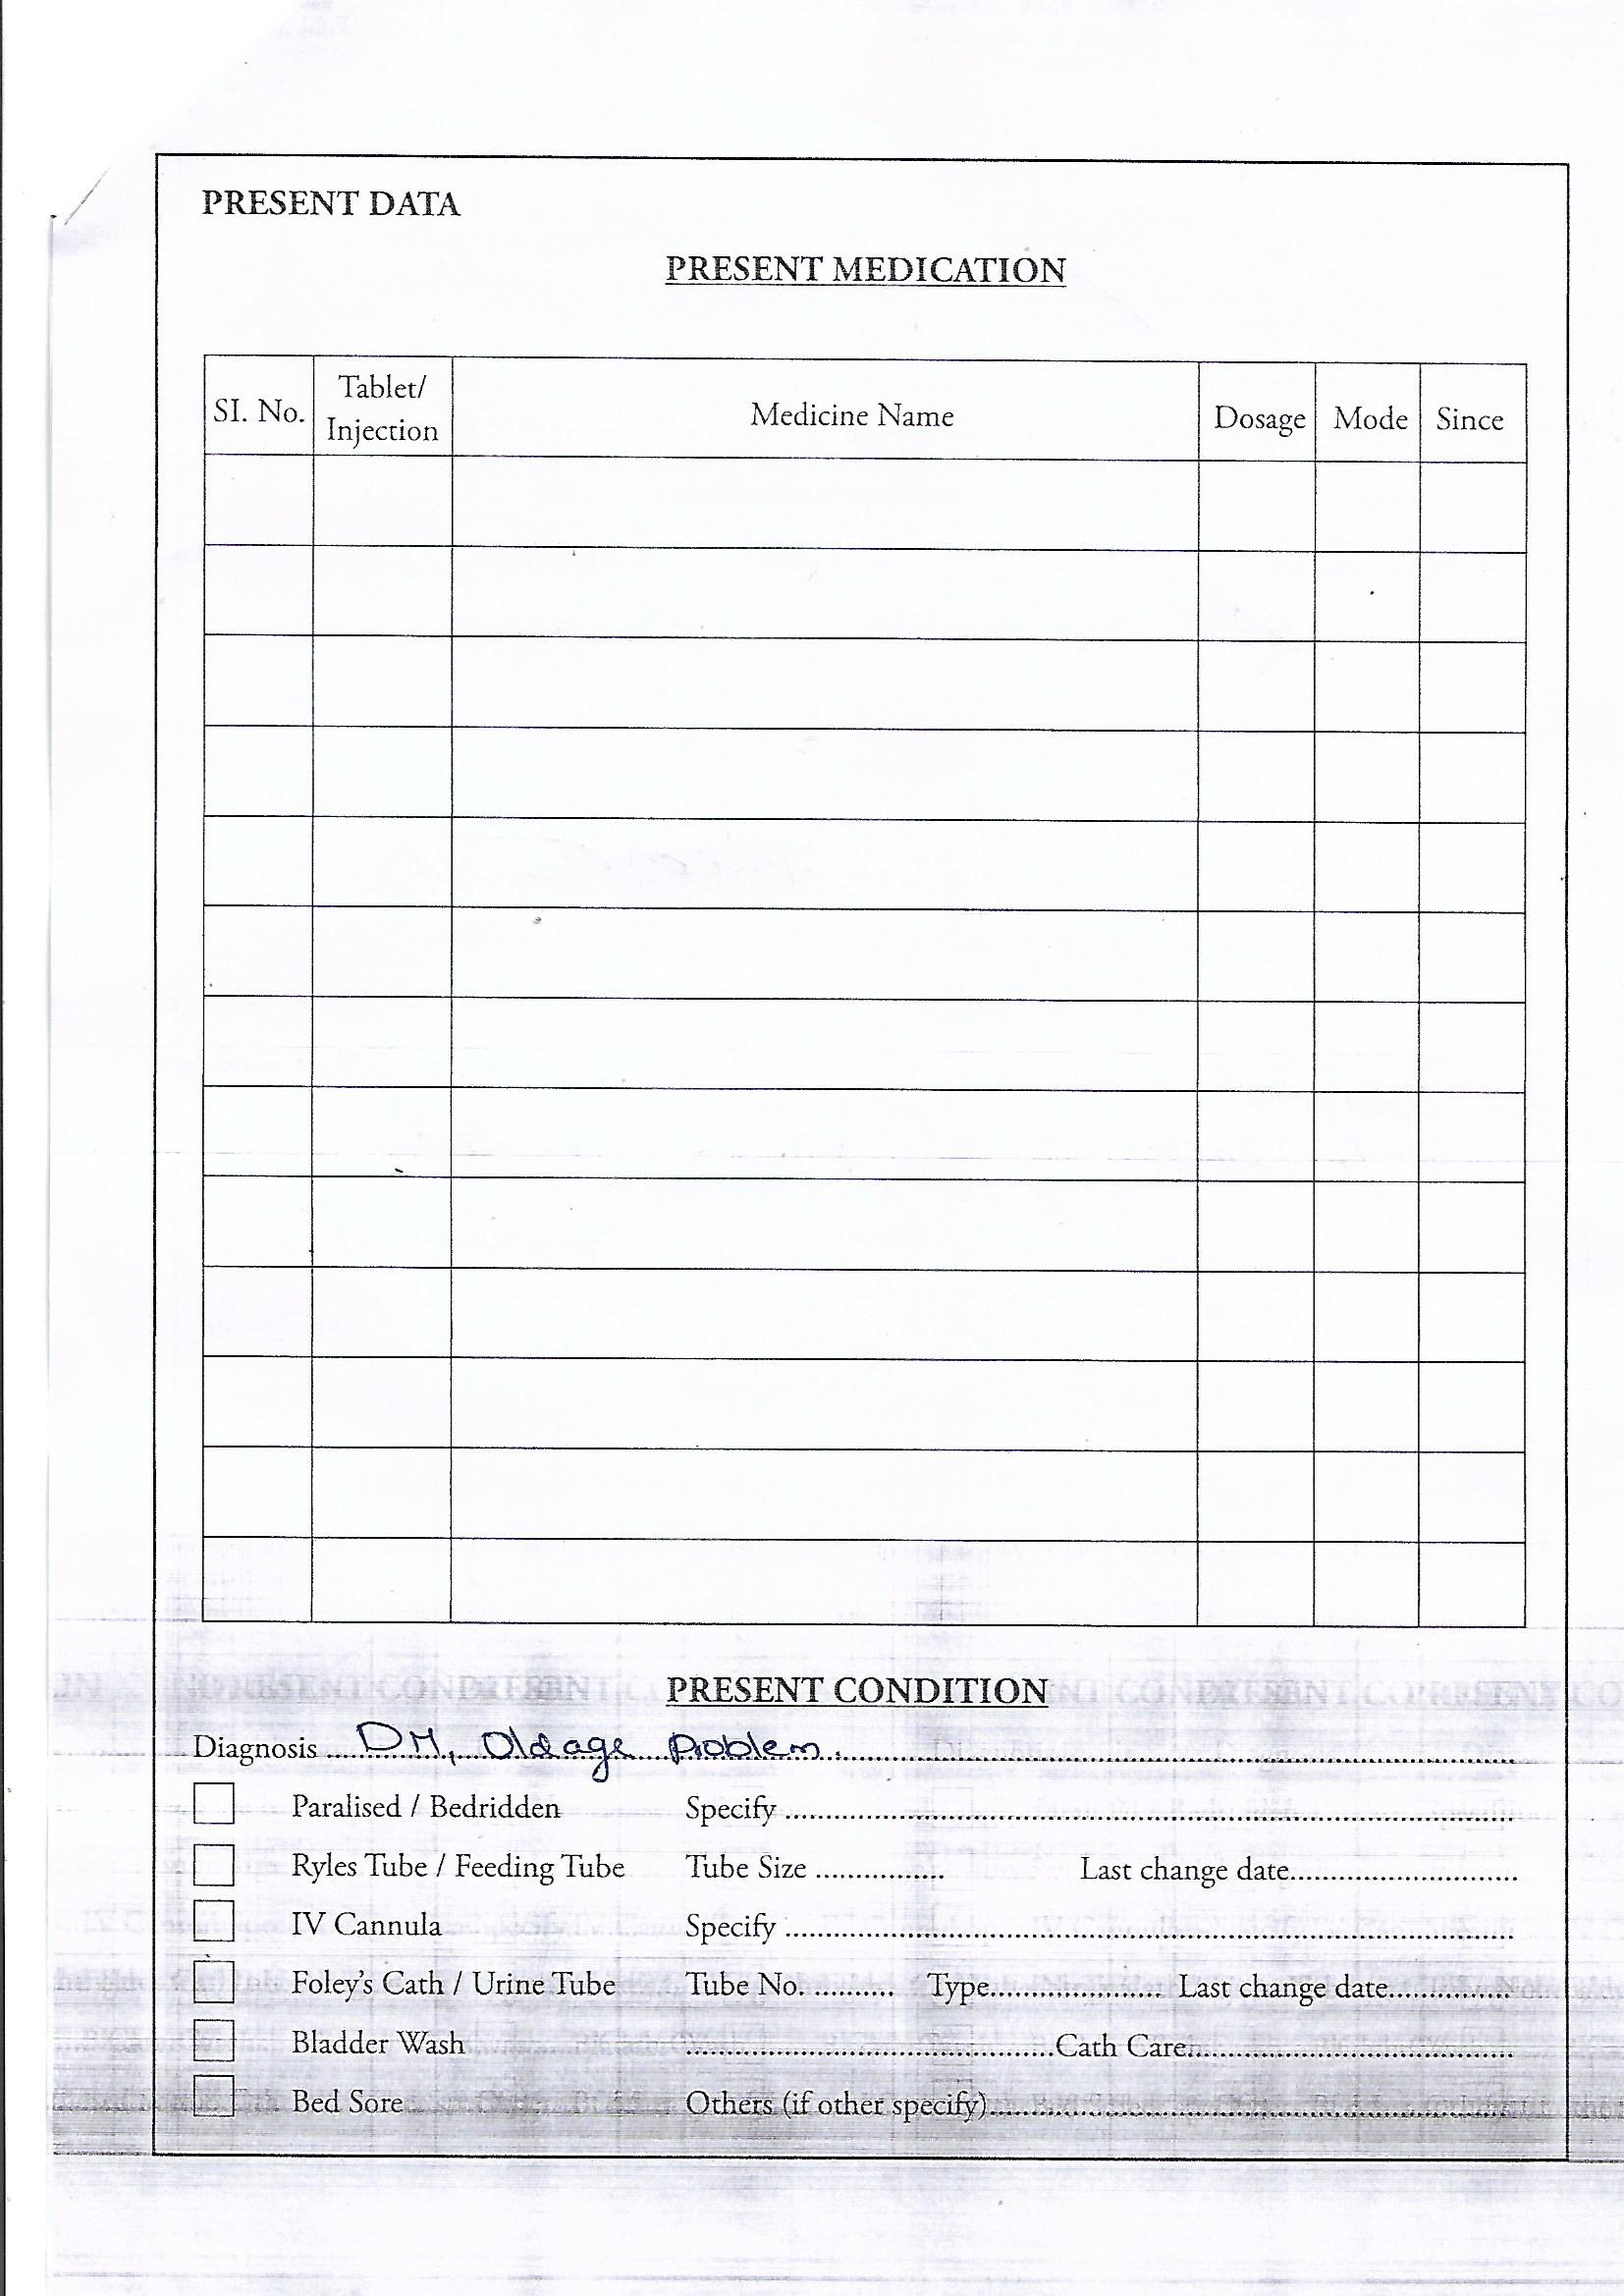 PRESENT DATA
PRESENT MEDICATION
SI. No. Tablet/ Injection Medicine Name Dosage Mode Since
PRESENT CONDITION
Diagnosis ....DM, Oldage Problem.....
Paralised / Bedridden Specify ....................
Ryles Tube / Feeding Tube Tube Size ................ Last change date............................
IV Cannula Specify ....................
Foley's Cath / Urine Tube Tube No. .......... Type..................... Last change date...............
Bladder Wash ..............................Cath Care..............................
Bed Sore Others (if other specify)..............................